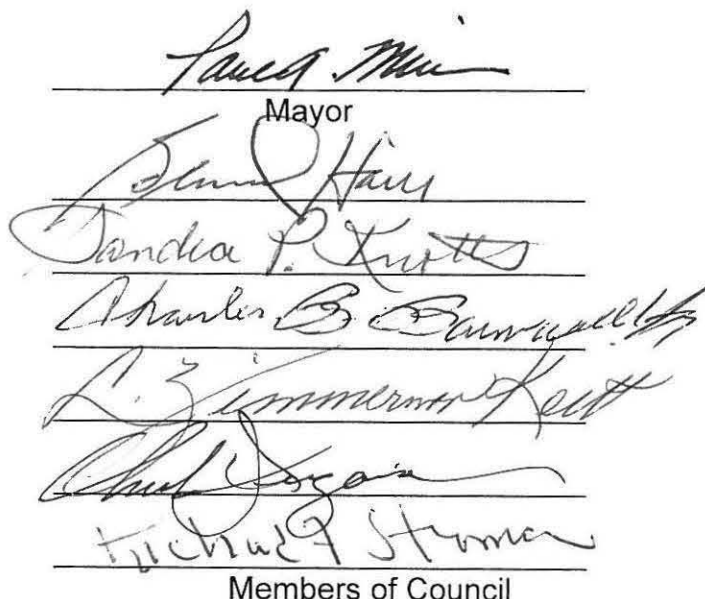 Paul A. Mi
Mayor
Haire
Sandra P. Knotts
Charles B. Barnwell, Jr.
L. Zimmerman Keitt
Richard F Stroman
Members of Council